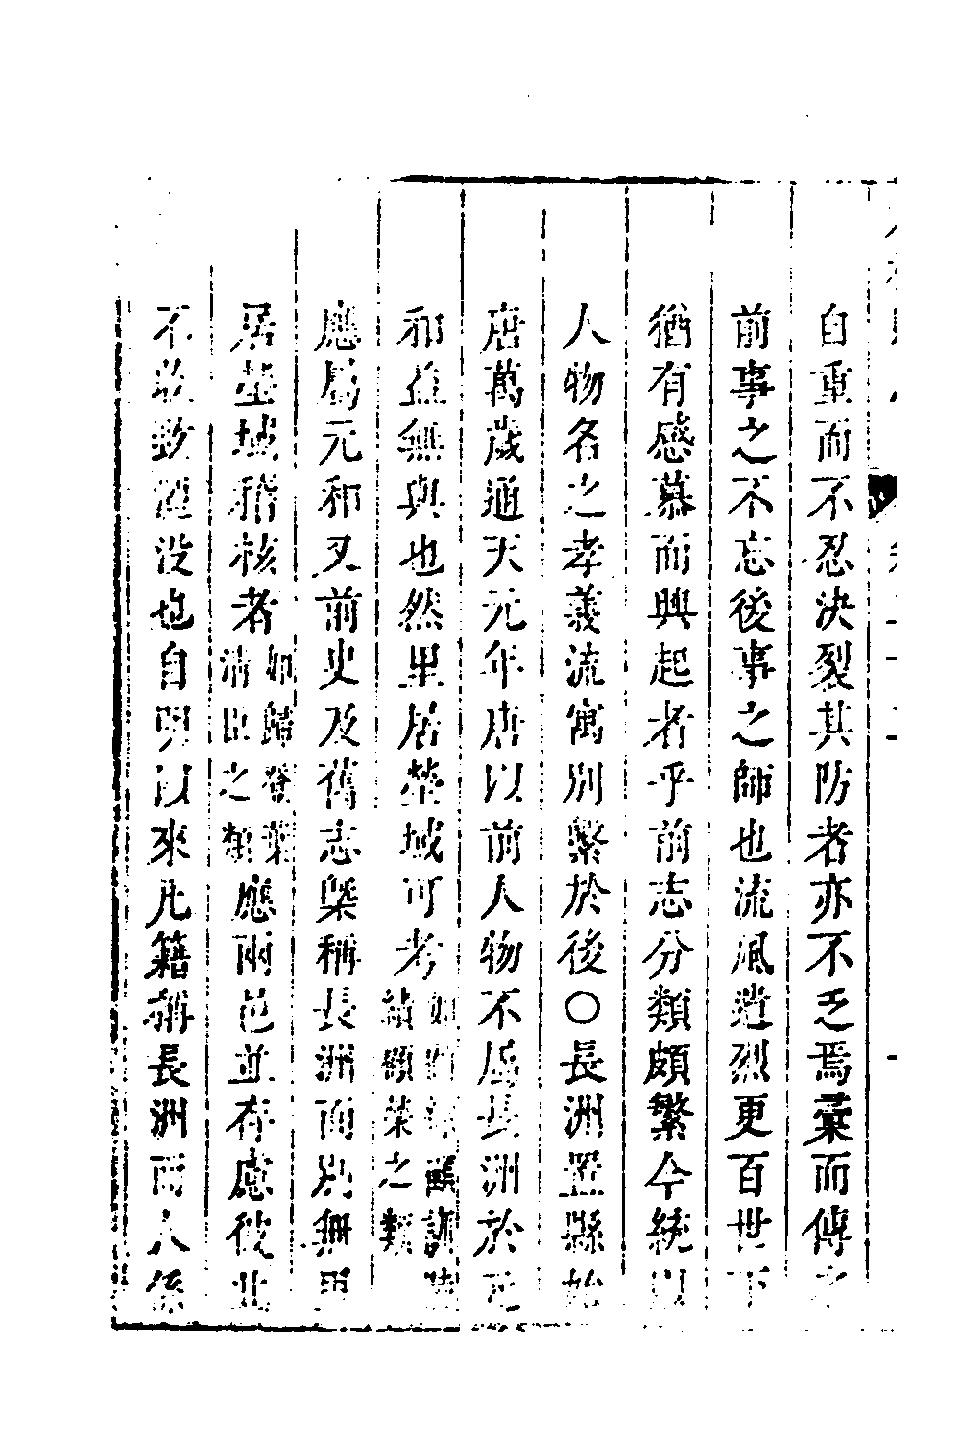 自重而不忍決裂其防者亦不乏焉彚而傳之
前事之不忘後事之師也流風遺烈更百世下
猶有感慕而興起者乎前志分類頗繁今統以
人物名之孝義流寓別繫於後○長洲置縣始
唐萬歲通天元年唐以前人物不爲長洲於元
和並無與也然里居塋域可考
應屬元和又前史及舊志槩稱長洲而別無里
居塋域稽核者應兩邑並存慮彼此
不敢致湮没也自明以來凡籍稱長洲而人係